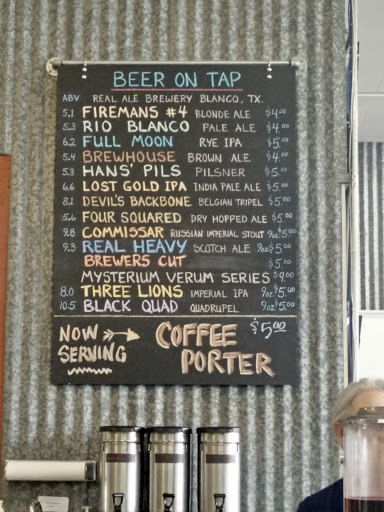 BEER ON TAP
ABV REAL ALE BREWERY BLANCO, TX.
5.1 FIREMANS #4 BLONDE ALE $4.00
5.3 RIO BLANCO PALE ALE $4.00
6.2 FULL MOON RYE IPA $5.00
5.4 BREWHOUSE BROWN ALE $4.00
5.3 HANS' PILS PILSNER $5.00
6.6 LOST GOLD IPA INDIA PALE ALE $5.00
8.1 DEVIL'S BACKBONE BELGIAN TRIPEL $5.00
5.6 FOUR SQUARED DRY HOPPED ALE $5.00
9.8 COMMISSAR RUSSIAN IMPERIAL STOUT 9oz $5.00
9.3 REAL HEAVY SCOTCH ALE 9oz $5.00
BREWERS CUT $5.00
MYSTERIUM VERUM SERIES $9.00
8.0 THREE LIONS IMPERIAL IPA 9oz $5.00
10.5 BLACK QUAD QUADRUPEL 9oz $5.00
NOW SERVING COFFEE PORTER $5.00